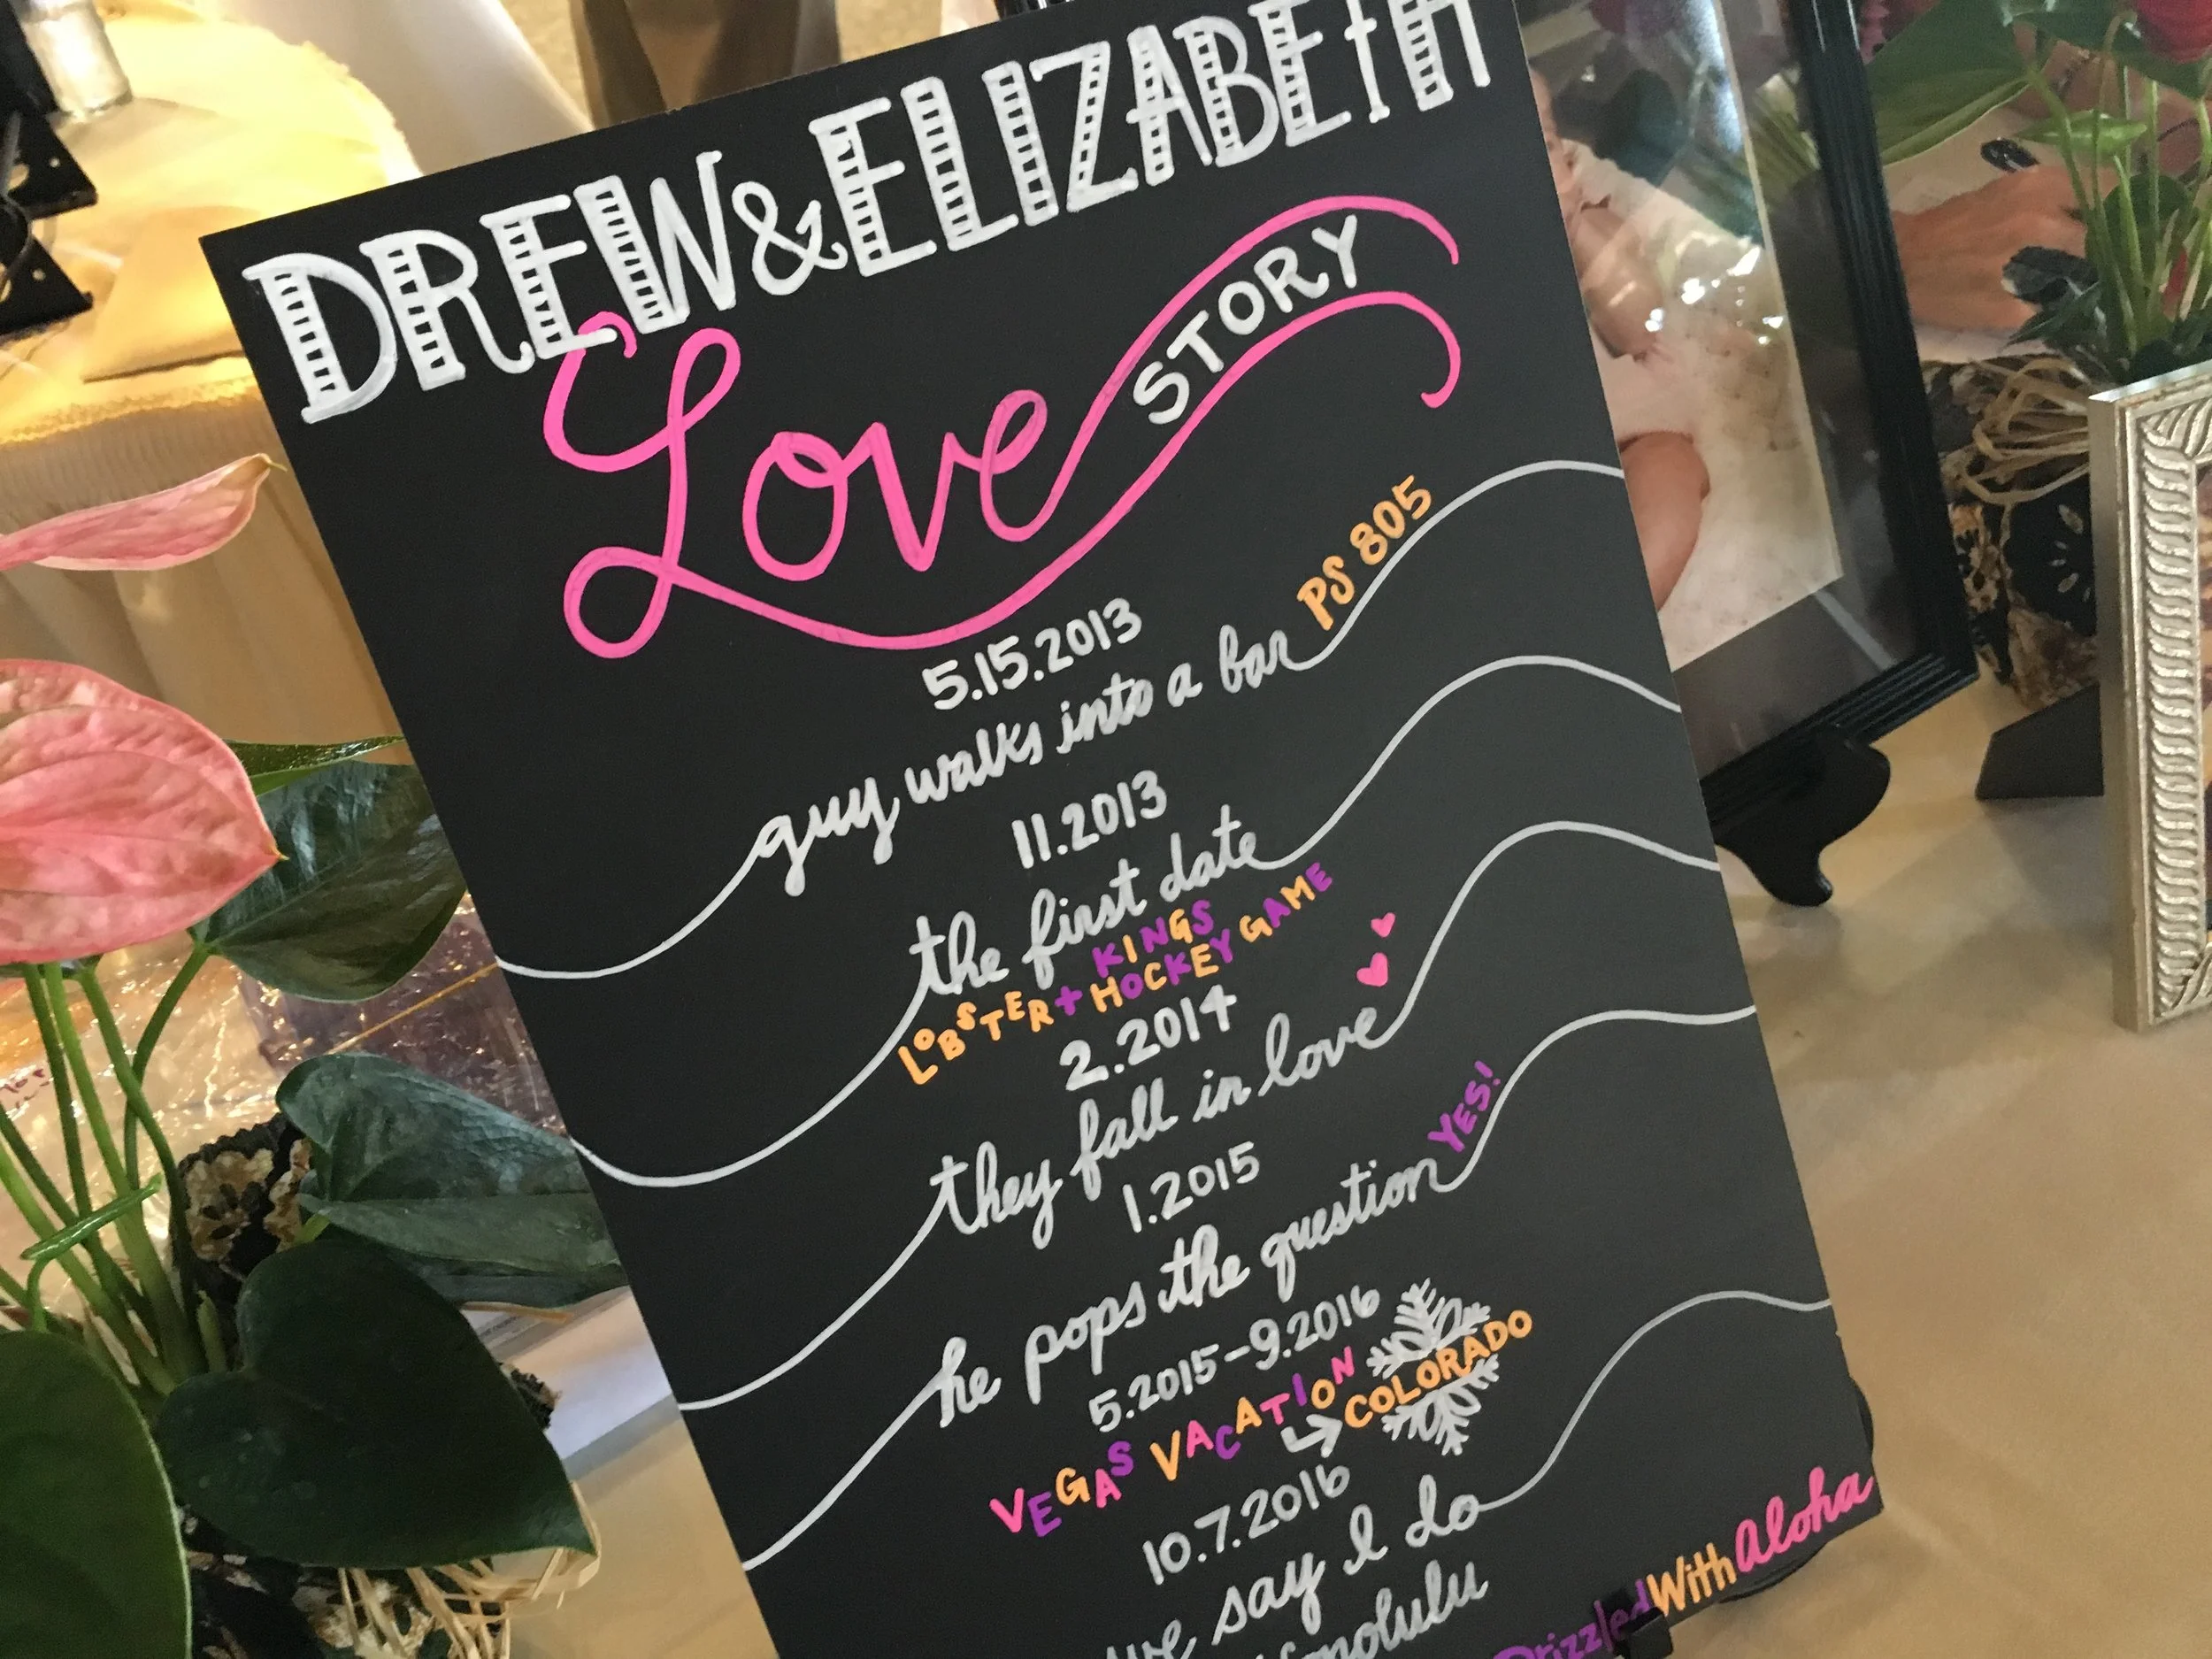 DREW & ELIZABETH
Love STORY
5.15.2013
guy walks into a bar PS 805
11.2013
the first date
KINGS
LOBSTER + HOCKEY GAME
2.2014
they fall in love
1.2015
he pops the question YES!
5.2015-9.2016
VEGAS VACATION
↳ COLORADO
10.7.2016
we say I do
Honolulu
DrizzledWithAloha